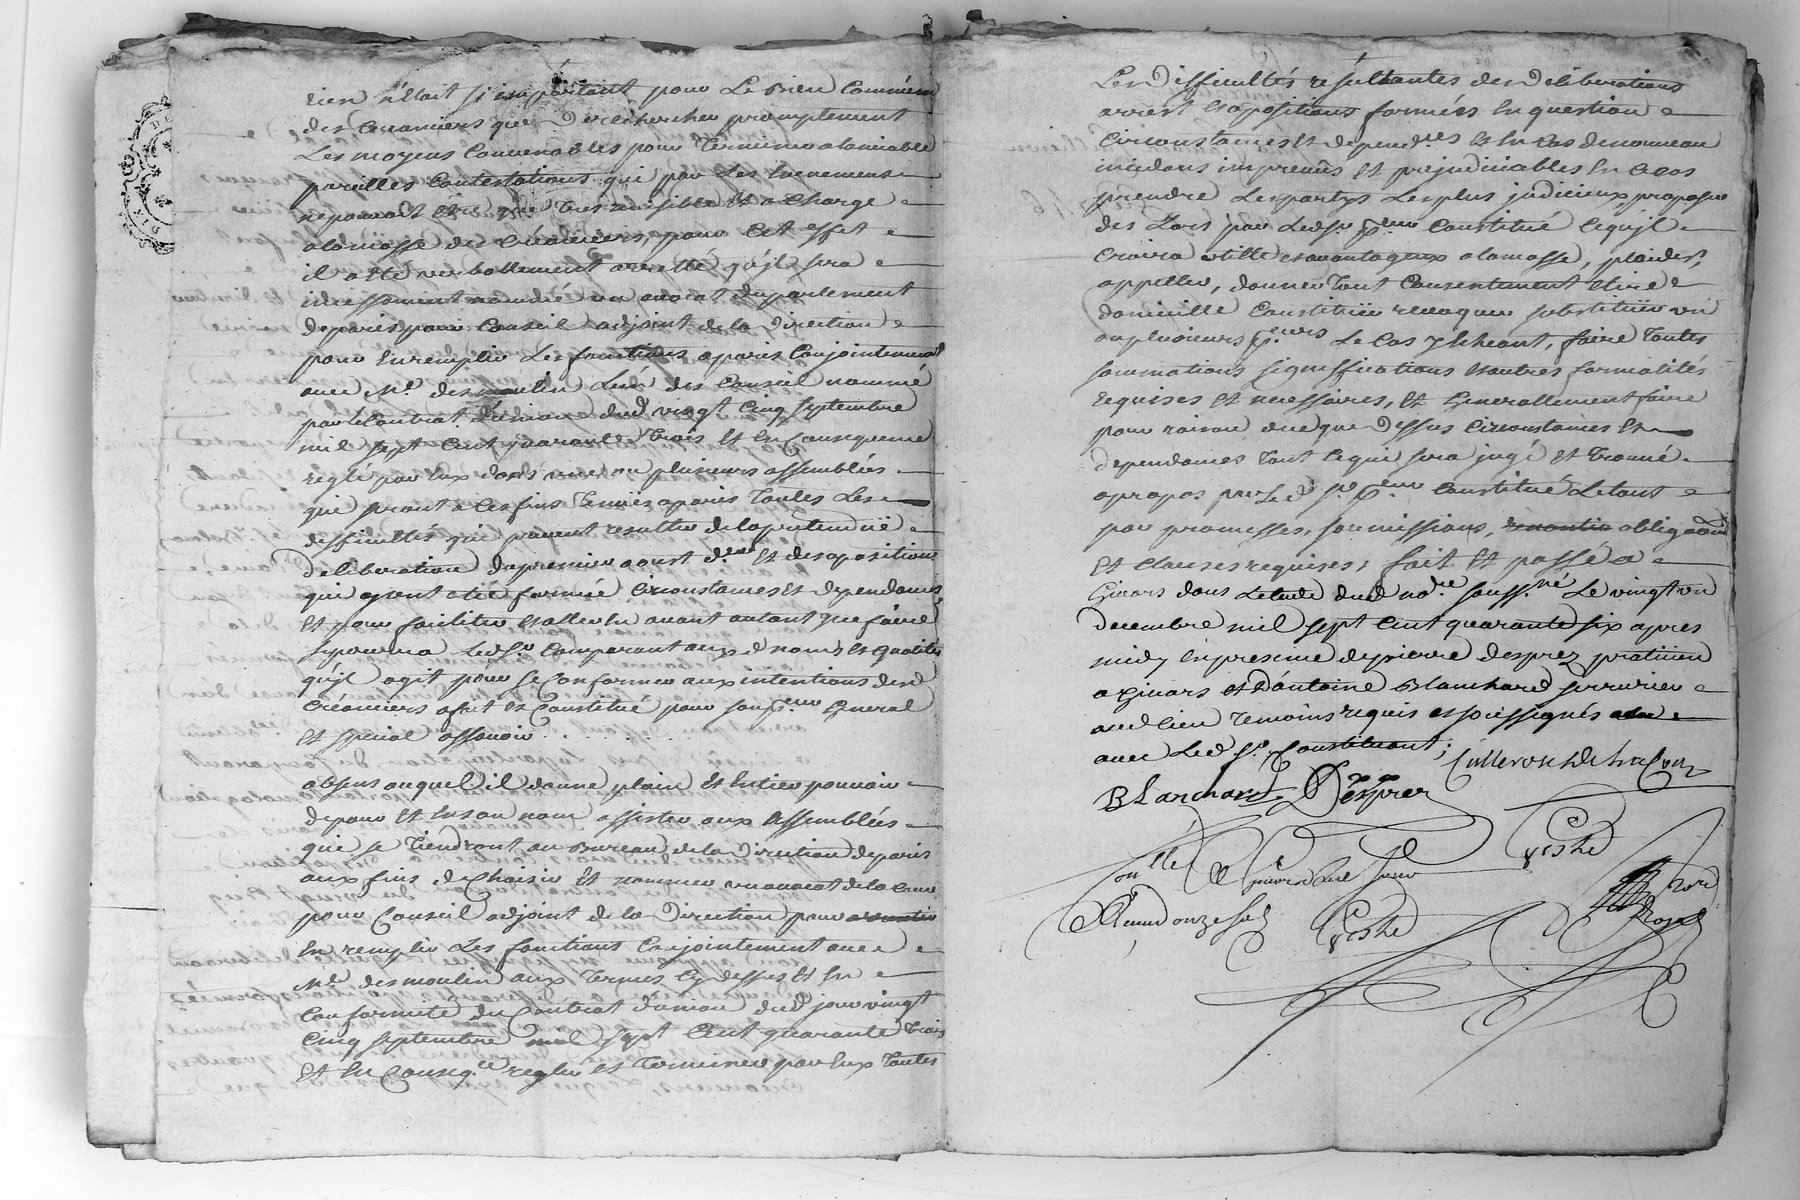 rien n'Etoit si important pour Le Bien Commun
des Creanciers que De rechercher promptement
Les moyens Convenables pour Terminer alamiable
pareilles Contestations qui par Les Evenemens
nepouvoit Etre que tres nuisible Et a Charge
alamasse des Créanciers, pour Cet effet
il a eté verballement arretté qu'jl sera
incessamment nommé un avocat duparlement
deparis pour Conseil adjoint de la Direction
pour En remplir Les fonctions aparis Conjointement
avec Me. desmoulin L'un des Conseil nommé
par le Contrat d'union dud. vingt Cinq septembre
mil sept Cent quarante trois Et En Consequence
reglé par Eux dans une ou plusieurs assemblées
qui seront a Ces fins Tenües aparis Toutes Les
difficultés qui peuvent resulter de la pretendüe
deliberation du premier aoust der. Et des opositions
qui ayent eté formée Circonstances Et dependances
Et pour faciliter Et aller En avant autant que faire
se pourra Led. Sr. Comparant aux d. noms Et qualités
qu'jl agit pour se Conformer aux intentions desd.
Créanciers a fait Et Constitué pour son preur. General
Et special assavoir
absens auquel il donne plain Et Entier pouvoir
de pour Et En son nom assister aux assemblées
que se Tiendront au Bureau de la Direction deparis
aux fins de Choisir Et nommer un avocat de la Cour
pour Conseil adjoint de la Direction pour
En remplir Les fonctions Conjointement avec
Me. desmoulin aux Termes Cy dessus Et En
Conformité du Contrat d'union dud. jour vingt
Cinq septembre mil sept Cent quarante trois
Et En Conseq.ce regler Et Terminer par Eux Toutes
Les Difficultés resultantes des Deliberations
arrest Et opositions formées En question
Circonstances Et depend.ces Et En Cas de nouveau
incidans imprevûs Et prejudiciables En Ce Cas
prendre Les partys Les plus judicieux, proposer
des Lors par Led. Sr. preur Constitué Ce qu'jl
Croira utille Et avantageux alamasse, plaider,
appeller, donner tout Consentement Elire
domicille Constitüer revoquer substitüer un
ou plusieurs p.eurs Le Cas y Echeant, faire Toutes
sommations significations Et autres formalités
requises Et necessaires, Et Generallement faire
pour raison de que Dessus Circonstances Et
dependances tout Ce qui sera jugé Et trouvé
apropos par Led. Sr. p.eur Constitué Le tout
par promesses, soumissions, obligaõns
Et Clauses requises, fait Et passé a
Givors dans Letude dud. no.re souss.né Le vingt un
decembre mil sept Cent quarante six apres
midy En presence de pierre desprez praticien
a Givors Et D'antoine Blanchard serrurier
aud. lieu Temoins requis Et soussignés
avec Led. Sr. Constituant;
Blanchard Desprez